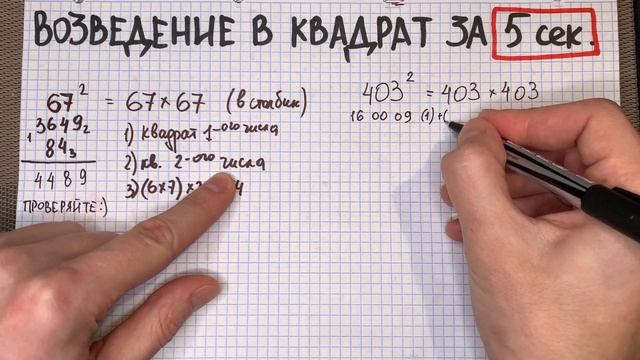 ВОЗВЕДЕНИЕ В КВАДРАТ ЗА 5 сек.
67² = 67 × 67 (в столбик)
3649₂
1 84₃
4489
ПРОВЕРЯЙТЕ:)
1) квадрат 1-ого числа
2) кв. 2-ого числа
3) (6×7) × 4
403² = 403 × 403
16 00 09 (1)+(